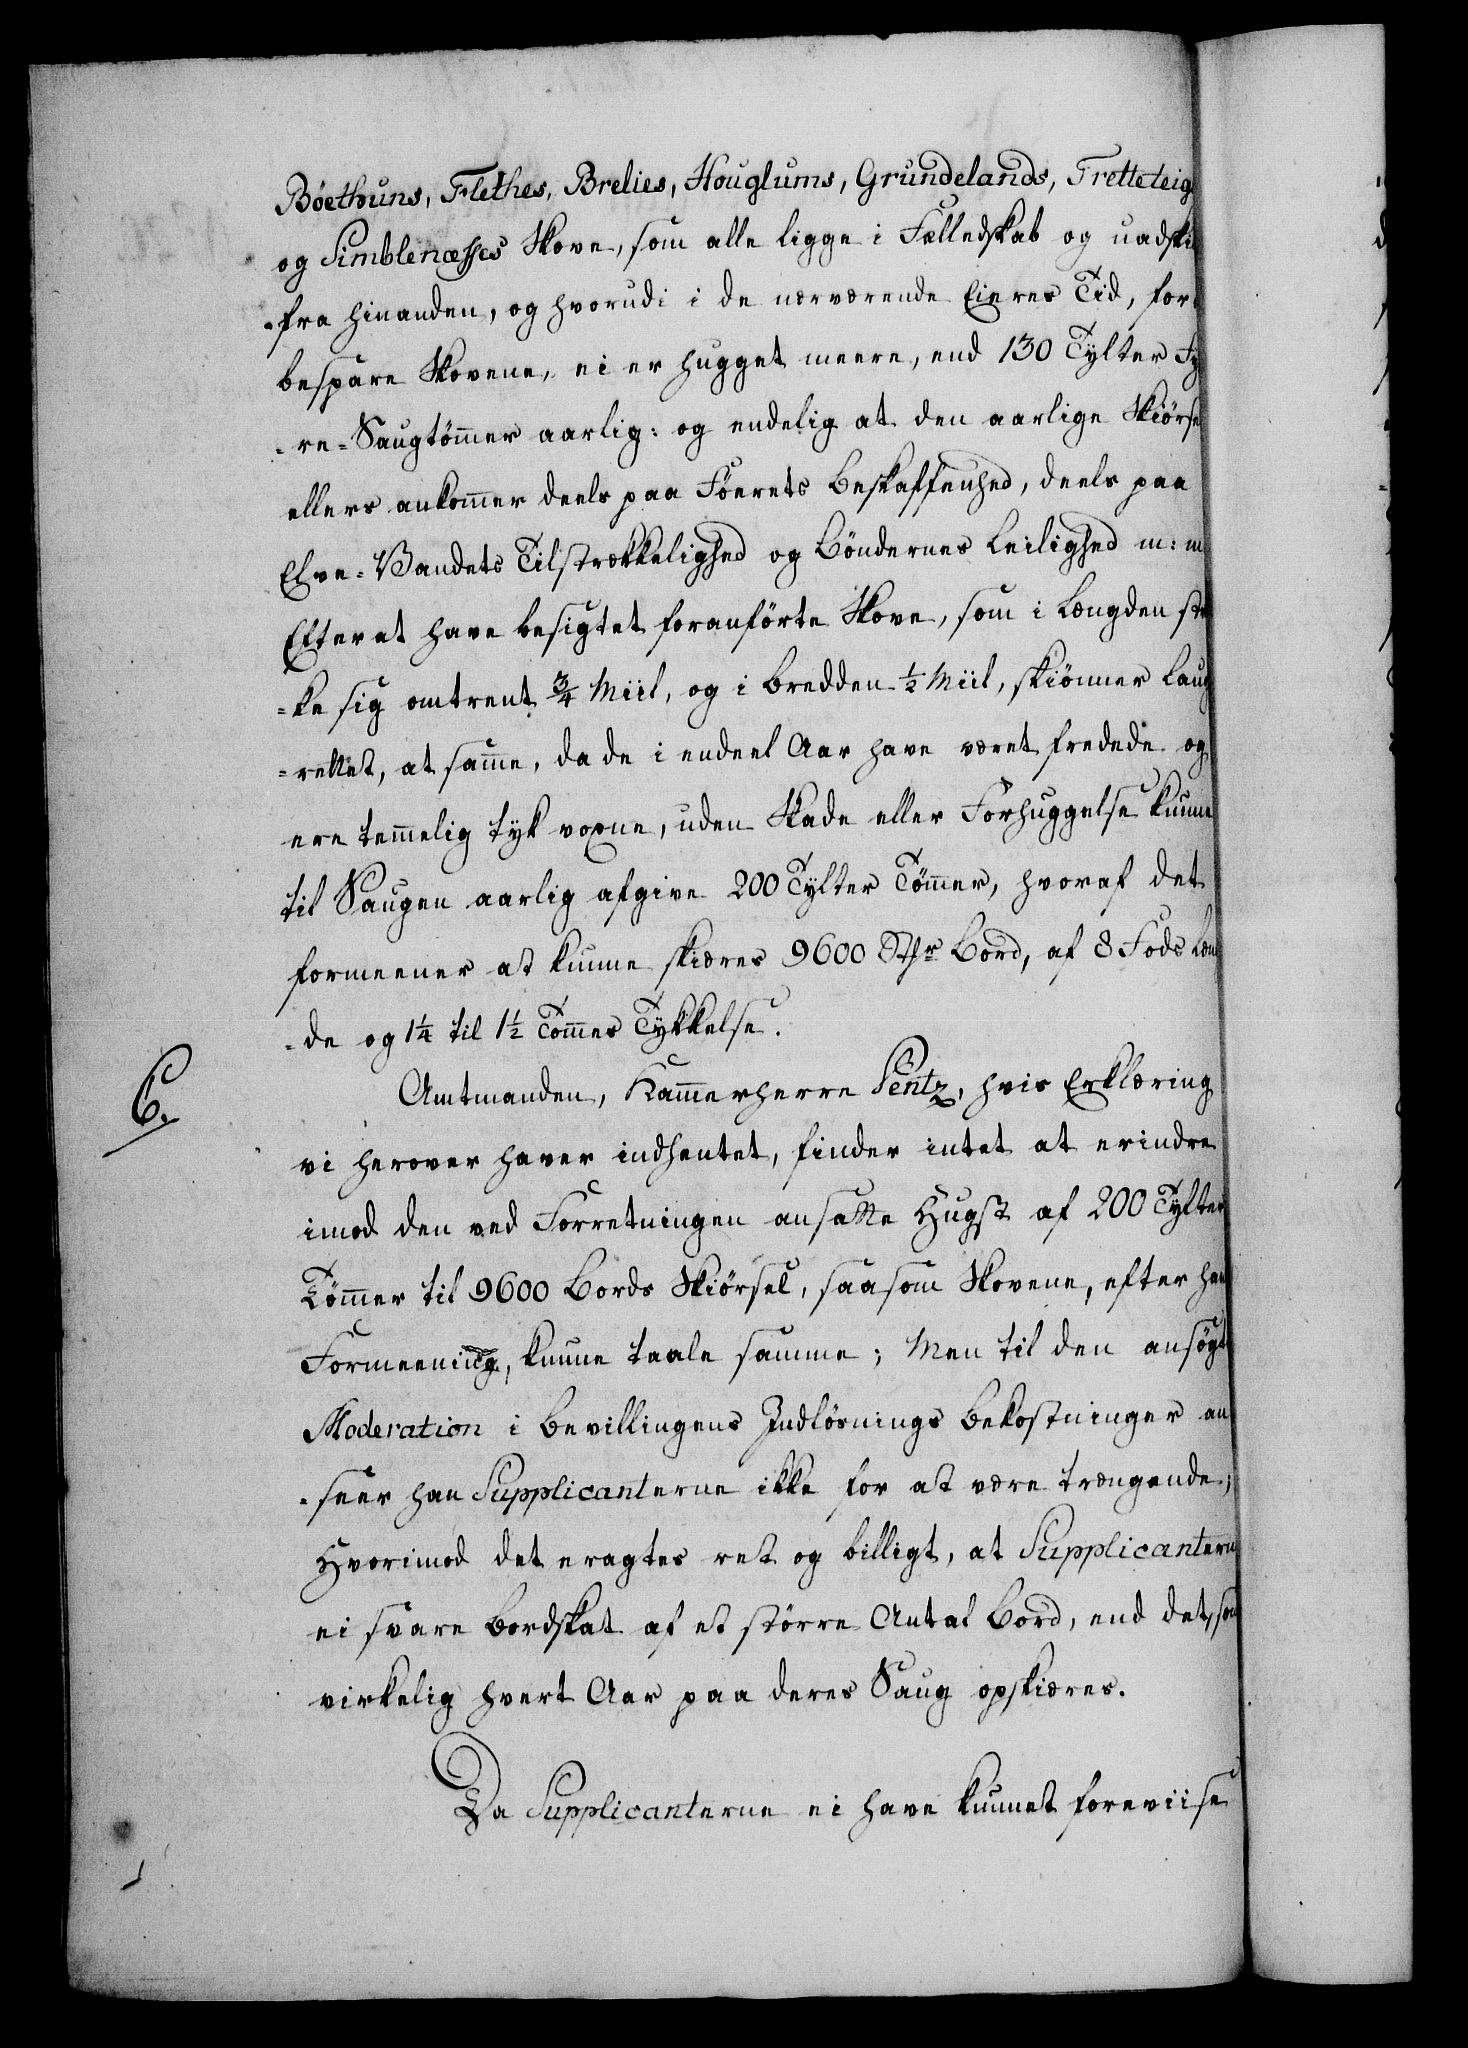 Böethuns, Flethes, Brelies, Houglums, Grundelands, Tretteteig
og Simblenæsses Skove, som alle ligge i Fælledskab og uadski
-fra hinanden, og hvorudi i de nærværende Eieres Tid, for
bespare Skovene, ei er hugget meere, end 130 Tylter Fy
-re-Saugtöm̄er aarlig: og endelig at den aarlige Skiörse
ellers ankom̄er deels paa Föerets Beskaffenhed, deels paa
Elve-Vandets Tilstrækkelighed og Böndernes Leilighed m: m
Efter at have besigtet foranförte Skove, som i Længden stræ
-ke sig omtrent ¾ Miil, og i Bredden ½ Miil, skiönner Laug
-rettet, at sam̄e, da de i endeel Aar have været fredede og
ere tem̄elig tyk voxne, uden Skade eller Forhuggelse kunne
til Saugen aarlig afgive 200 Tylter Töm̄er, hvoraf det
formeener at kunne skiæres 9600 Stkr Bord, af 8 Fods Læn
-de og 1¼ til 1½ Tom̄es Tykkelse.
6.
Amtmanden, Kam̄erherre Sentz, hvis Erklæring
vi herover haver indhentet, finder intet at erindre
imod den ved Forretningen ansatte Hugst af 200 Tylter
Töm̄er til 9600 Bords Skiörsel, saasom Skovene, efter han
Formeening, kunne taale samme; Men til den ansögte
Moderation i Bevillingens Indlösnings Bekostninger an
-seer han Supplicanterne ikke for at være trængende;
Hvorimod det eragtes ret og billigt, at Supplicanterne
ei svare Bordskat af et större Antal Bord, end det, som
virkelig hvert Aar paa deres Saug opskiæres.
Da Supplicanterne ei have kunnet foreviise